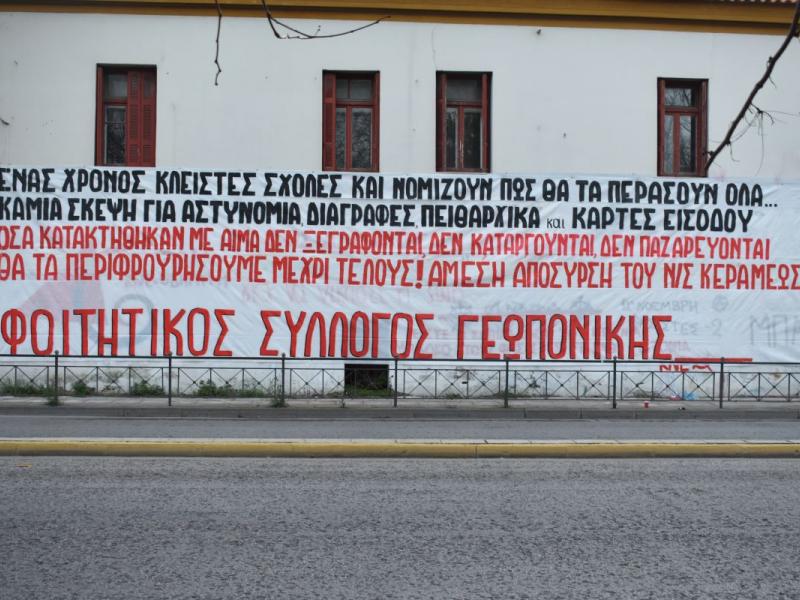 ΕΝΑΣ ΧΡΟΝΟΣ ΚΛΕΙΣΤΕΣ ΣΧΟΛΕΣ ΚΑΙ ΝΟΜΙΖΟΥΝ ΠΩΣ ΘΑ ΤΑ ΠΕΡΑΣΟΥΝ ΟΛΑ...
ΚΑΜΙΑ ΣΚΕΨΗ ΓΙΑ ΑΣΤΥΝΟΜΙΑ, ΔΙΑΓΡΑΦΕΣ, ΠΕΙΘΑΡΧΙΚΑ και ΚΑΡΤΕΣ ΕΙΣΟΔΟΥ
ΟΣΑ ΚΑΤΑΚΤΗΘΗΚΑΝ ΜΕ ΑΙΜΑ ΔΕΝ ΞΕΓΡΑΦΟΝΤΑΙ, ΔΕΝ ΚΑΤΑΡΓΟΥΝΤΑΙ, ΔΕΝ ΠΑΖΑΡΕΥΟΝΤΑΙ
ΘΑ ΤΑ ΠΕΡΙΦΡΟΥΡΗΣΟΥΜΕ ΜΕΧΡΙ ΤΕΛΟΥΣ! ΑΜΕΣΗ ΑΠΟΣΥΡΣΗ ΤΟΥ Ν/Σ ΚΕΡΑΜΕΩΣ
ΦΟΙΤΗΤΙΚΟΣ ΣΥΛΛΟΓΟΣ ΓΕΩΠΟΝΙΚΗΣ